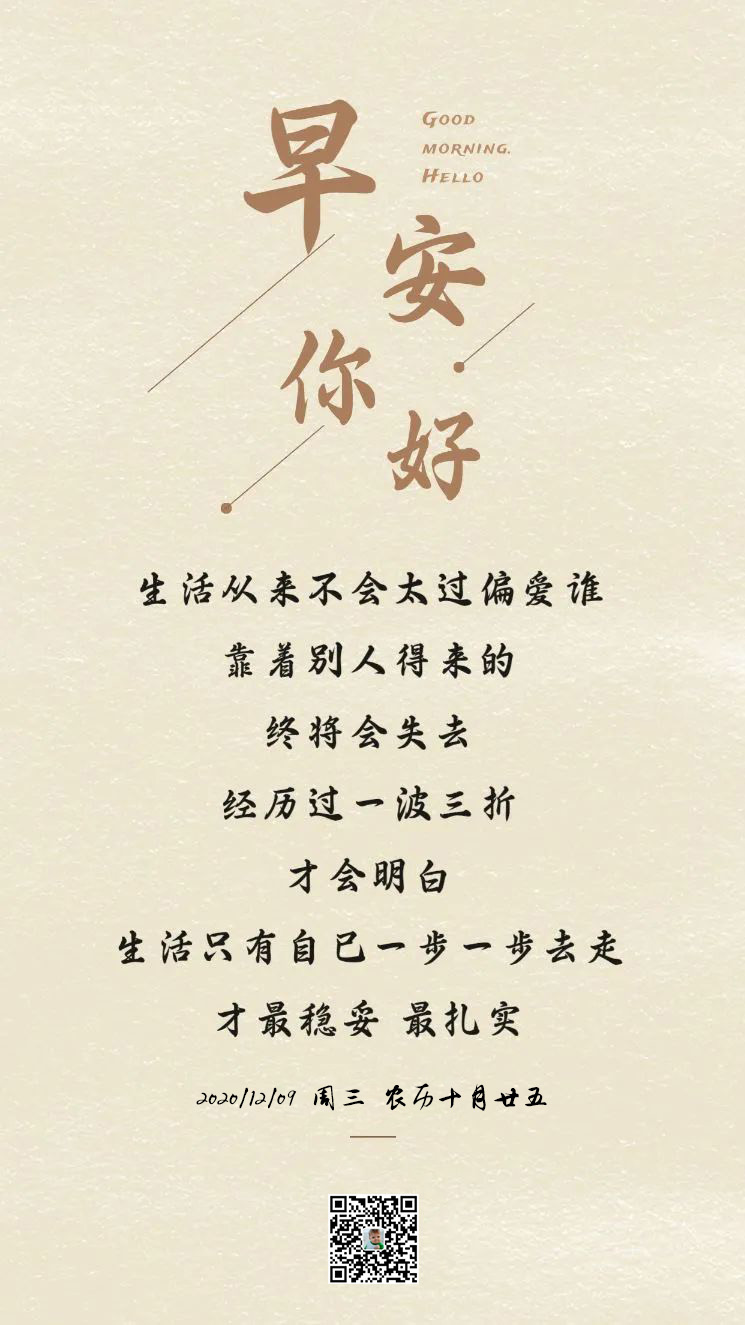 早安
你好
Good
morning.
Hello
生活从来不会太过偏爱谁
靠着别人得来的
终将会失去
经历过一波三折
才会明白
生活只有自己一步一步去走
才最稳妥 最扎实
2020/12/09 周三 农历十月廿五